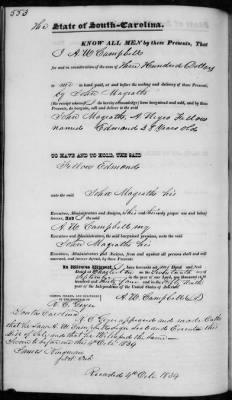 553
The State of South-Carolina.
KNOW ALL MEN by these Presents, That
I A W Campbell
for and in consideration of the sum of Three Hundred Dollars
to me in hand paid, at and before the sealing and delivery of these Presents,
by John Magrath
(the receipt whereof I do hereby acknowledge) have bargained and sold, and by these
Presents, do bargain, sell and deliver to the said
John Magrath A Negro Fellow
named Edmond 34 Years old
TO HAVE AND TO HOLD, THE SAID
Fellow Edmond
unto the said John Magrath his
Executors, Administrators and Assigns, to his and their only proper use and behoof
forever. And I the said
A W Campbell my
Executors and Administrators, the said bargained premises, unto the said
John Magrath his
Executors, Administrators and Assigns, from and against all persons shall and will
warrant, and forever defend, by these Presents.
In Witness Whereof, I have hereunto set my Hand and Seal
Dated at Charleston on the
September in the year of our Lord, one thousand eight
hundred and thirty four and in the fifty Ninth
year of the Independence of the United States of America.
SIGNED, SEALED AND DELIVERED
IN THE PRESENCE OF
A. W. Campbell
South Carolina
appeared and made Oath
that he saw A W Campbell Sign Seal and Execute this
Bill of Sale and that he Witnessed the same
Sworn to before me this 4th Octr 1834
James
Recorded 4th Octr 1834